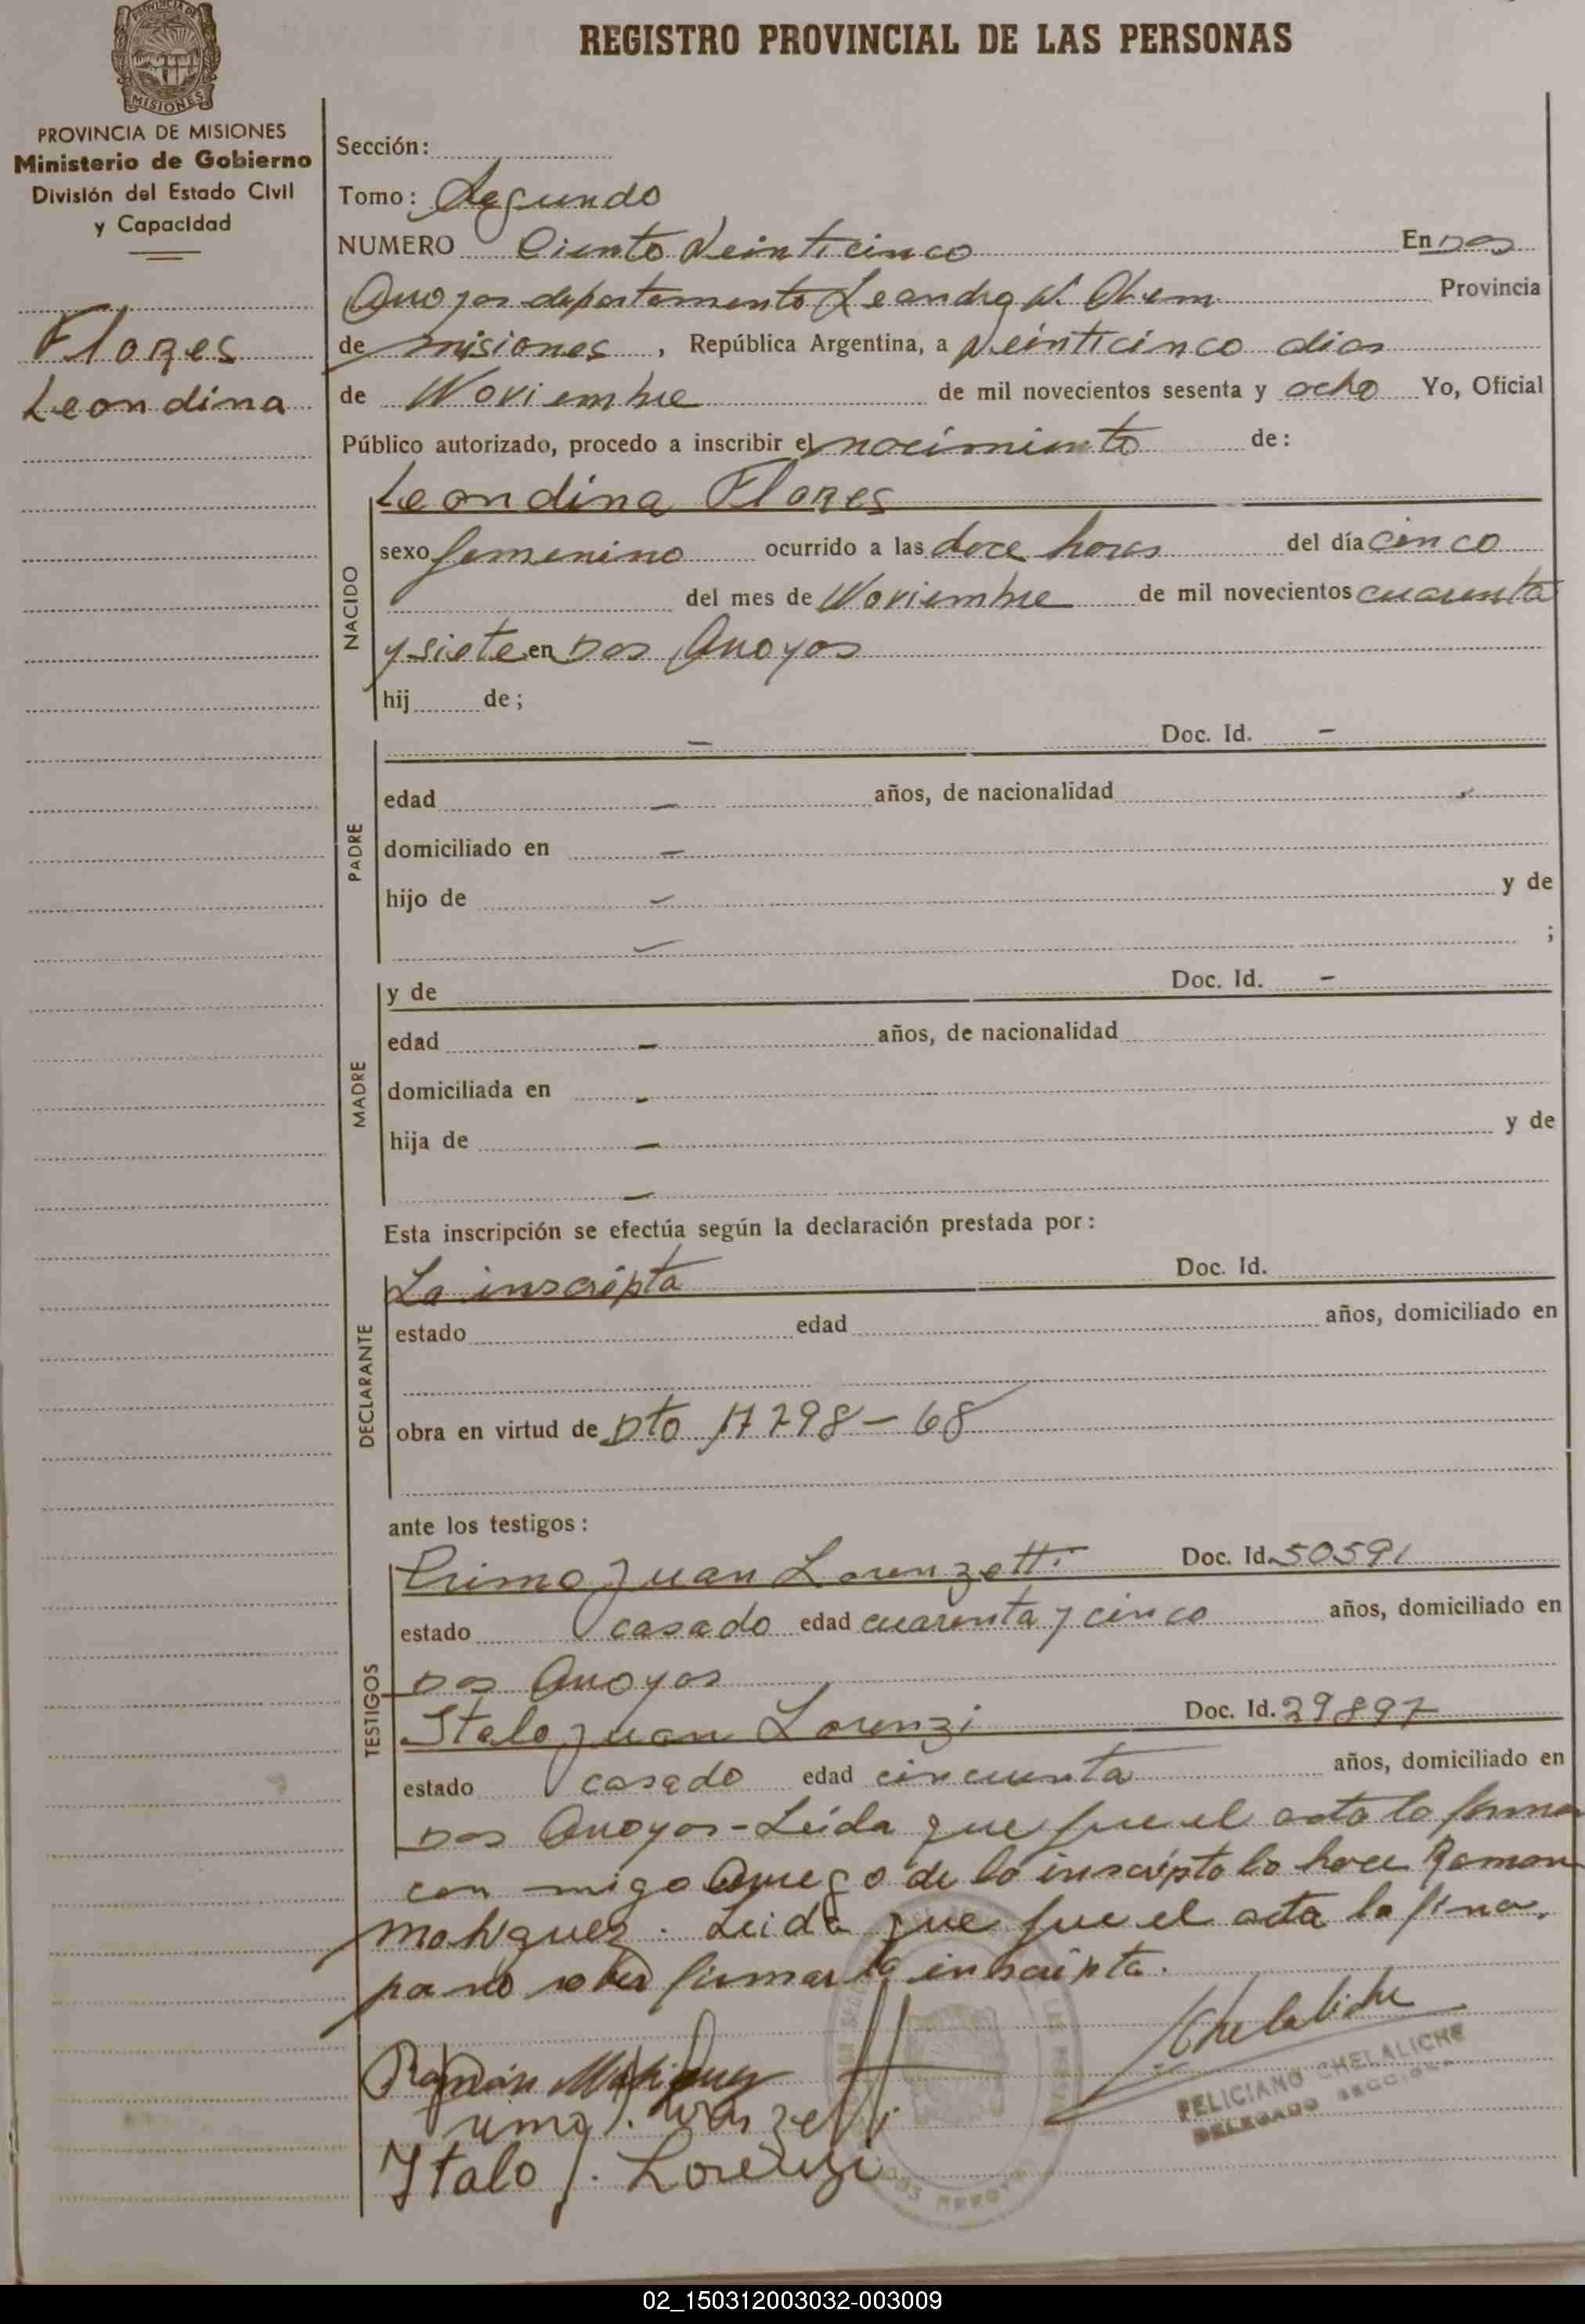 PROVINCIA DE
MISIONES
REGISTRO PROVINCIAL DE LAS PERSONAS
PROVINCIA DE MISIONES
Ministerio de Gobierno
División del Estado Civil
y Capacidad
Flores
Leondina
Sección:
Tomo: Segundo
NUMERO Ciento Veinticinco En Dos
Arroyos departamento Leandro N. Alem Provincia
de misiones, República Argentina, a Veinticinco dias
de Noviembre de mil novecientos sesenta y ocho Yo, Oficial
Público autorizado, procedo a inscribir el nacimiento de:
NACIDO
Leondina Flores
sexo femenino ocurrido a las doce horas del día cinco
del mes de Noviembre de mil novecientos cuarenta
y siete en Dos Arroyos
hij de;
PADRE
- Doc. Id. -
edad - años, de nacionalidad -
domiciliado en -
hijo de - y de
- ;
MADRE
y de Doc. Id. -
edad - años, de nacionalidad
domiciliada en -
hija de - y de
-
Esta inscripción se efectúa según la declaración prestada por:
DECLARANTE
La inscripta Doc. Id.
estado edad años, domiciliado en
obra en virtud de Dto 17798-68
ante los testigos:
TESTIGOS
Primo Juan Lorenzetti Doc. Id. 50591
estado casado edad cuarenta y cinco años, domiciliado en
Dos Arroyos
Italo Juan Lorenzi Doc. Id. 29897
estado casado edad cincuenta años, domiciliado en
Dos Arroyos - Leída que fue el acta la firma
con migo Aruego de la inscripta lo hace Ramon
. Leida que fue el acta la firma,
por no saber firmar la inscripta.
Chelaliche
FELICIANO CHELALICHE
DELEGADO SECCIONAL
Ramón
Primo J. Lorenzetti
Italo J. Lorenzi
DOS ARROYOS
02_150312003032-003009